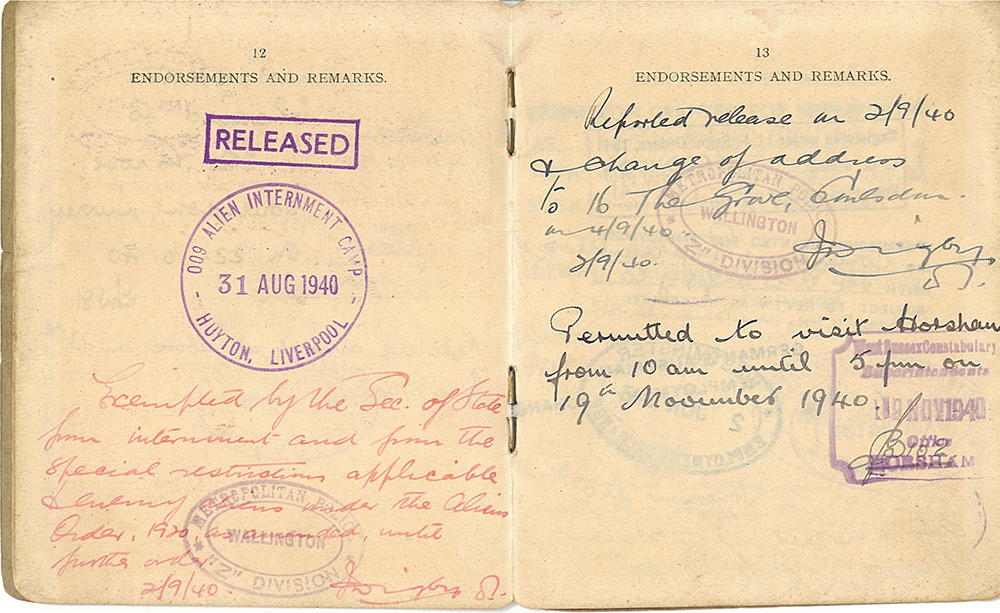 12
ENDORSEMENTS AND REMARKS.
RELEASED
009 ALIEN INTERNMENT CAMP
31 AUG 1940
HUYTON, LIVERPOOL
Exempted by the Sec. of State
from internment and from the
special restrictions applicable
to enemy aliens under the Aliens
Order, 1920, as amended, until
further order.
2/9/40.
METROPOLITAN
WALLINGTON
"Z" DIVISION
13
ENDORSEMENTS AND REMARKS.
Reported release on 2/9/40
& change of address
to 16 The Grove, Coulsdon.
on 4/9/40
2/9/40.
METROPOLITAN
WALLINGTON
"Z" DIVISION
Permitted to visit Horsham
from 10 am until 5 pm on
19th November 1940.
West Sussex Constabulary
Superintendents
19 NOV 1940
Office
HORSHAM